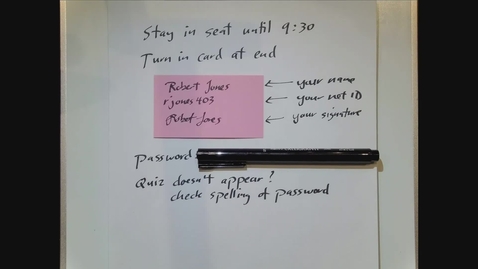 Stay in seat until 9:30
Turn in card at end
Robert Jones ← your name
rjones403 ← your net ID
Robert Jones ← your signature
Password
Quiz doesn't appear?
check spelling of password